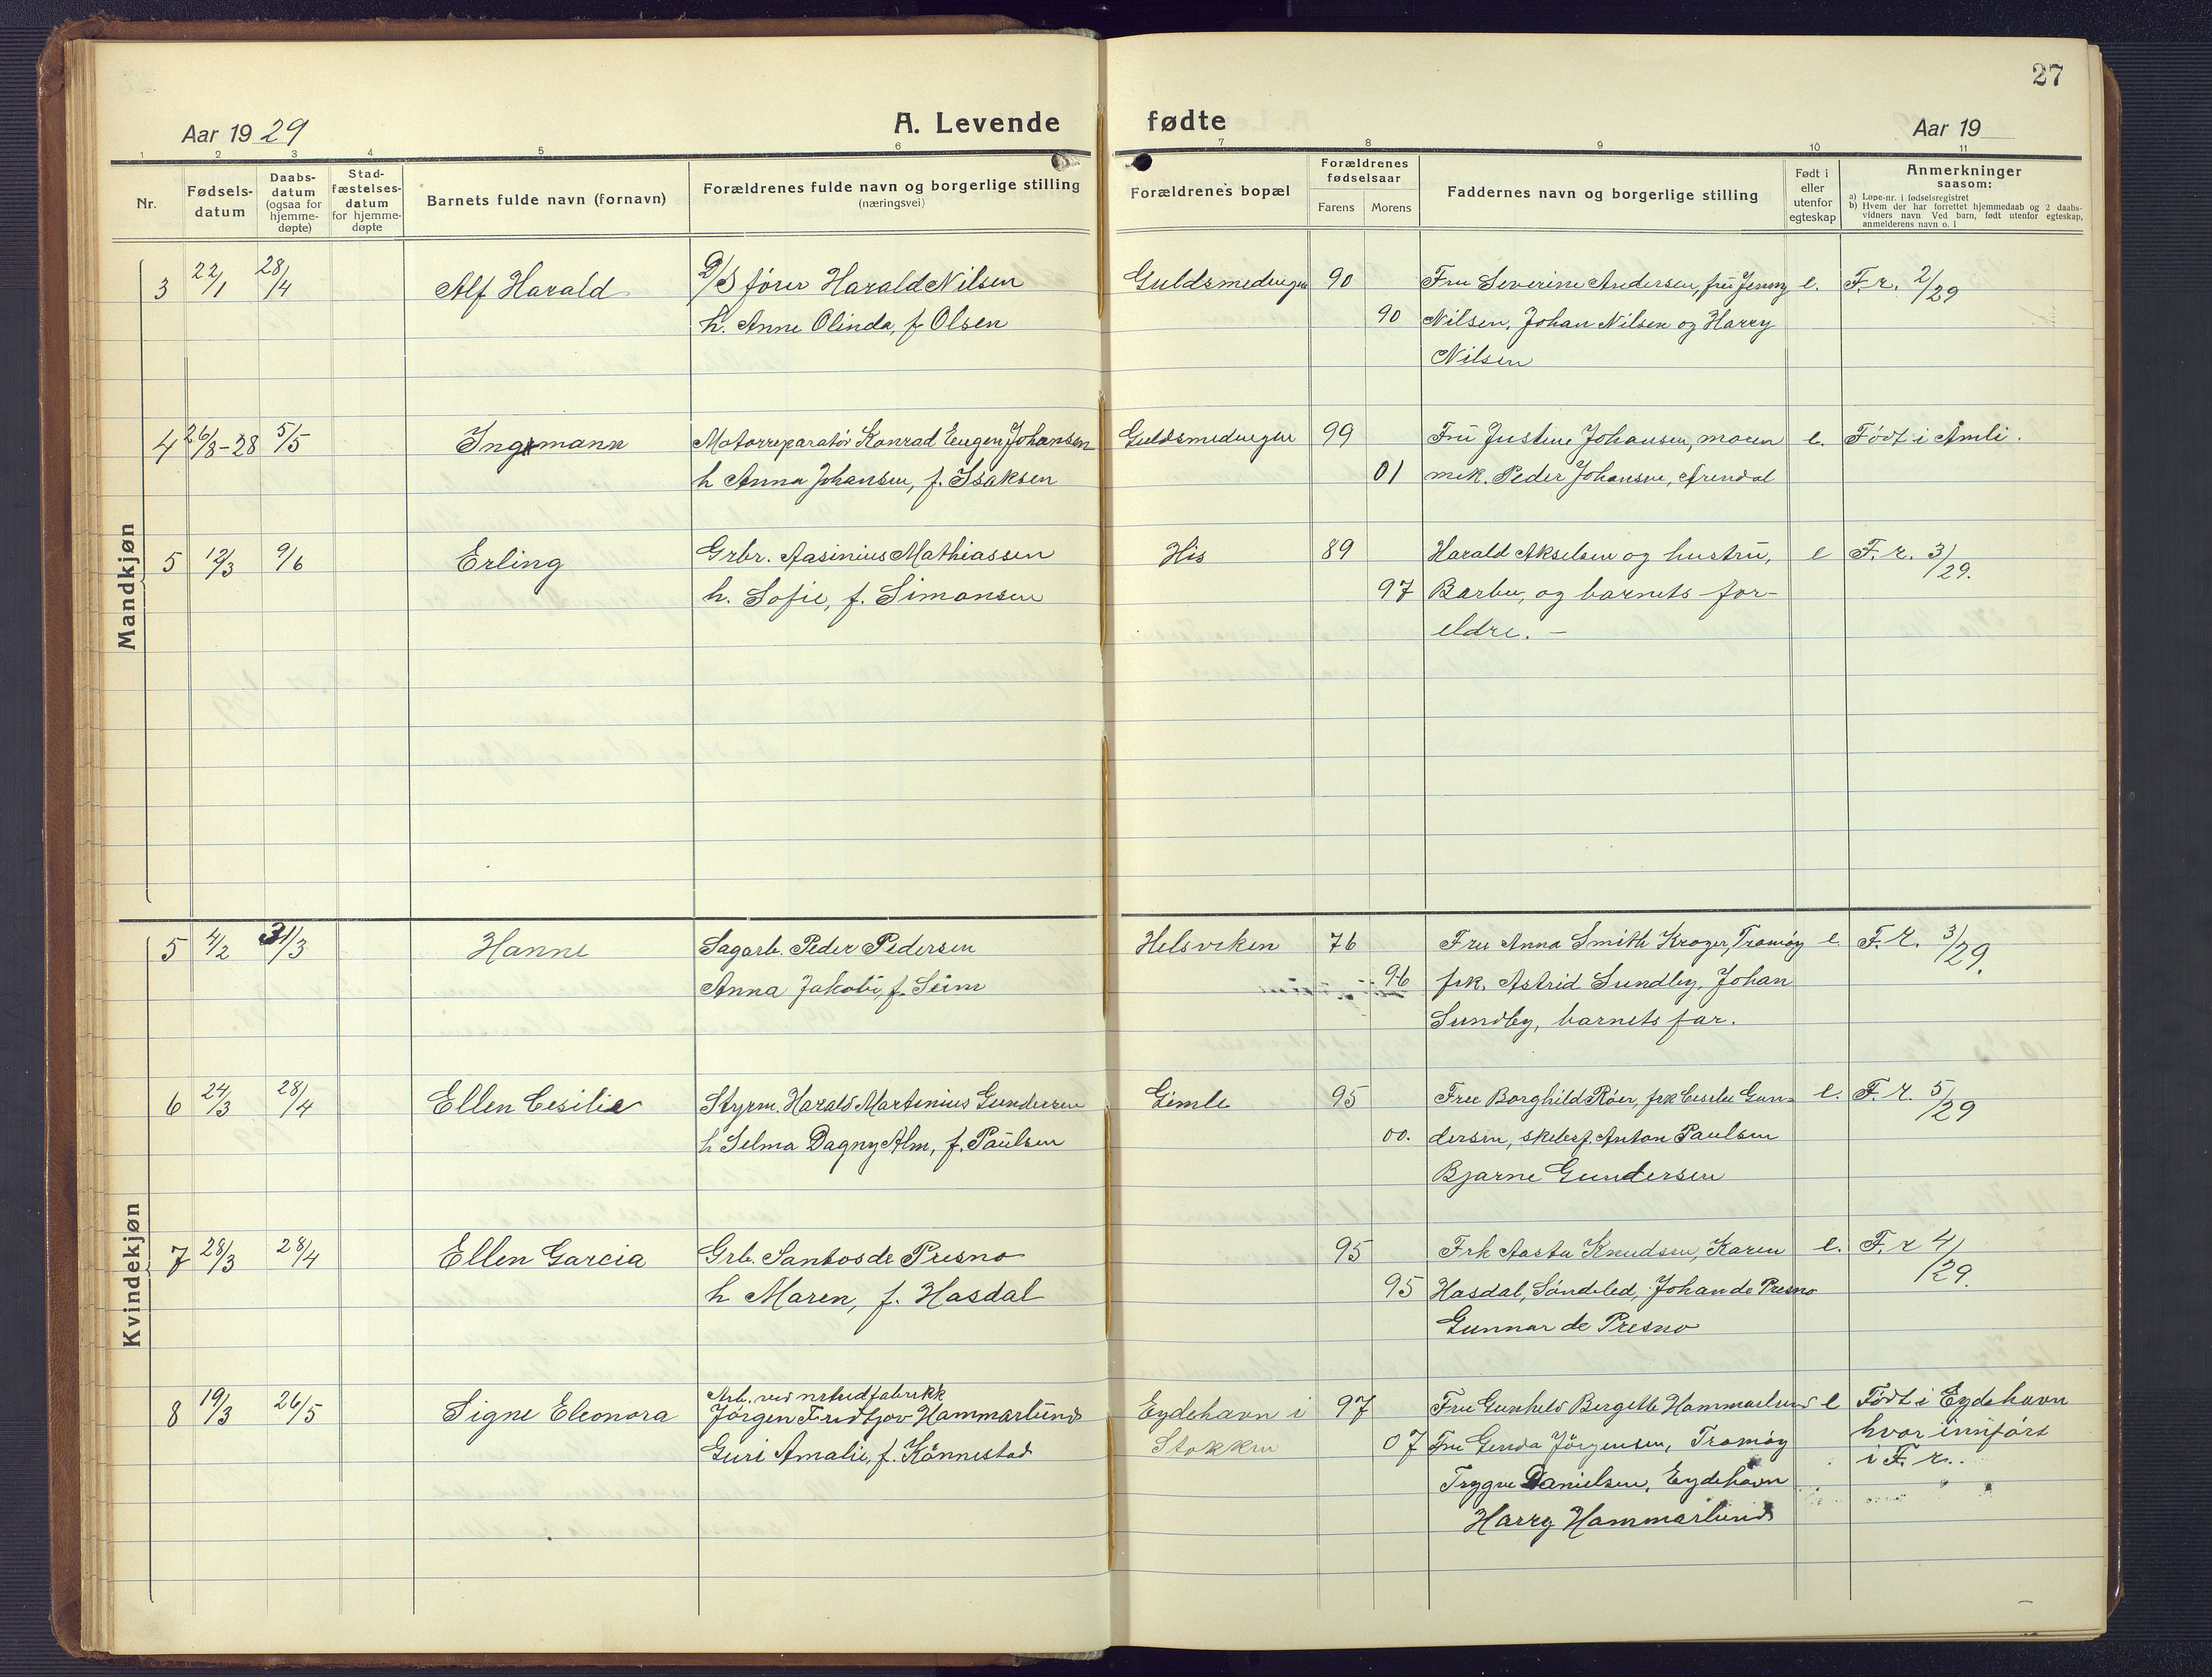 27
Aar 1929
A. Levende fødte
Aar 19
1 2 3 4 5 6 7 8 9 10 11
Nr.
Fødsels-
datum
Daabs-
datum
(ogsaa for
hjemme-
døpte)
Stad-
fæstelses-
datum
for hjemme-
døpte
Barnets fulde navn (fornavn)
Forældrenes fulde navn og borgerlige stilling
(næringsvei)
Forældrenes bopæl
Forældrenes
fødselsaar
Farens Morens
Faddernes navn og borgerlige stilling
Født i
eller
utenfor
egteskap
Anmerkninger
saasom:
a) Løpe-nr. i fødselsregistret
b) Hvem der har forrettet hjemmedaab og 2 daabs-
vidners navn Ved barn, født utenfor egteskap,
anmelderens navn o. l
Mandkjøn
3 22/1 28/4 Alf Harald D/S fører Harald Nilsen Guldsmedengen 90 Fru Severine Andersen, fru Jenny e. F. r. 2/29
h. Anne Olinda, f Olsen 90 Nilsen, Johan Nilsen og Harry
Nilsen
4 26/8-28 5/5 Ingemann Motorreparatør Konrad Eugen Johansen Guldsmedengen 99 Fru Justine Johansen, e. Født i Åmli.
h Anna Johansen, f. Isaksen 01 mek. Peder Johansen, Arendal
5 12/3 9/6 Erling Grbr. Aasinius Mathiassen His 89 Harald Akselsen og hustru, e F. r. 3/29.
h. Sofie, f. Simonsen 97 Barbu, og barnets for-
eldre. –
Kvindekjøn
5 4/2 31/3 Hanne Sagarb. Peder Pedersen Helsviken 76 Fru Anna Smith Krøger, Tromøy e. F. r. 3/29.
Anna Jakobi, f. Seim 96 frk. Astrid Sundby, Johan
Sundby, barnets far.
6 24/3 28/4 Ellen Cesilie Styrm. Harald Martinius Gundersen Gimle 95 Fru Borghild Røer, frk Cesilie Gun- e. F. r. 5/29
h Selma Dagny Alm, f. Paulsen 00. dersen, Anton Paulsen
Bjarne Gundersen
7 28/3 28/4 Ellen Garcia Grb. Santos de Presno 95 Frk Aasta Knudsen, Karen e. F. r 4/29.
h Maren, f. Hasdal 95 Hasdal, Søndeled, Johan de Presno
Gunnar de Presno
8 19/3 26/5 Signe Eleonora Arb. ved nitridfabrikk
Jørgen Fridtjov Hammarlund Eydehavn i 97 Fru Gunhild Bergette Hammarlund e Født i Eydehavn
hvor innført
Guri Amalie, f. Kånnestad Stokken 07 Fru Gerda Jörgensen, Tromøy i F. r.
Trygve Danielsen, Eydehavn
Harry Hammarlund